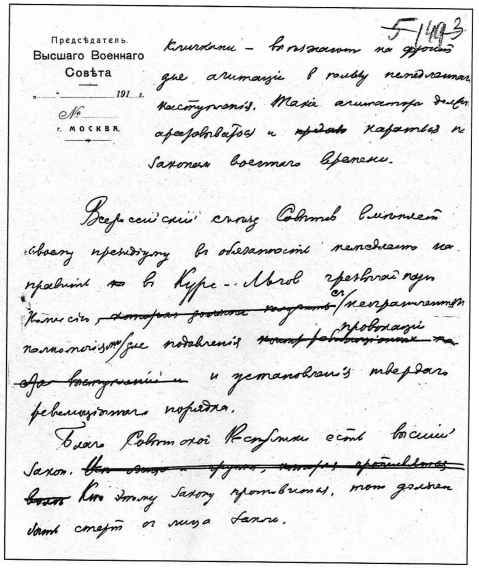 5/193
Предсѣдатель
Высшаго Военнаго
Совѣта
" " 191 г.
№
г. МОСКВА.
кличками — въѣзжают на фронт
для агитаціи в пользу немедленнаго
наступленія. Такіе агитаторы должны
арестовываться и караться по
законам военнаго времени.
Всероссійскій съѣзд Совѣтов вмѣняет
своему президіуму в обязанность немедленно на
править в Курск - Льгов чрезвычайную
Комиссію, которая должна получить с неограниченными
полномочіями для подавленія провокацій
выступленій и и установленія твердаго
революціоннаго порядка.
Благо Совѣтской Республики есть высшій
закон. Кто этому закону противится, тот должен
быть стерт с лица земли.